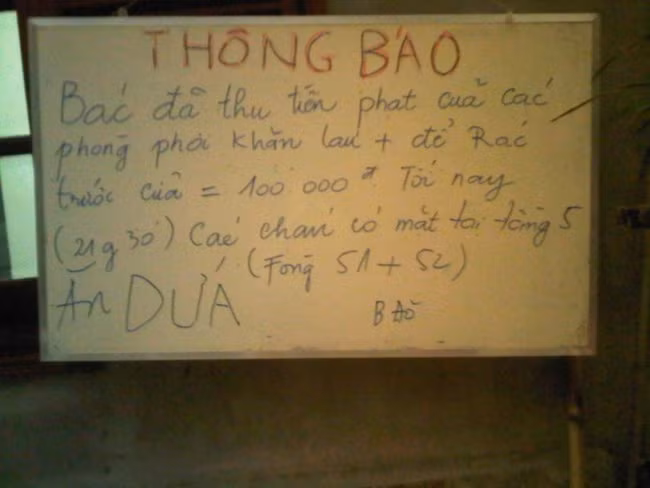 THÔNG BÁO
Bác đã thu tiền phạt của các
phòng phơi khăn lau + để Rác
trước cửa = 100 000 đ Tối nay
(21 g 30') Các cháu có mặt tại tầng 5
(Fòng 51 + 52)
ĂN DỨA
BẢO